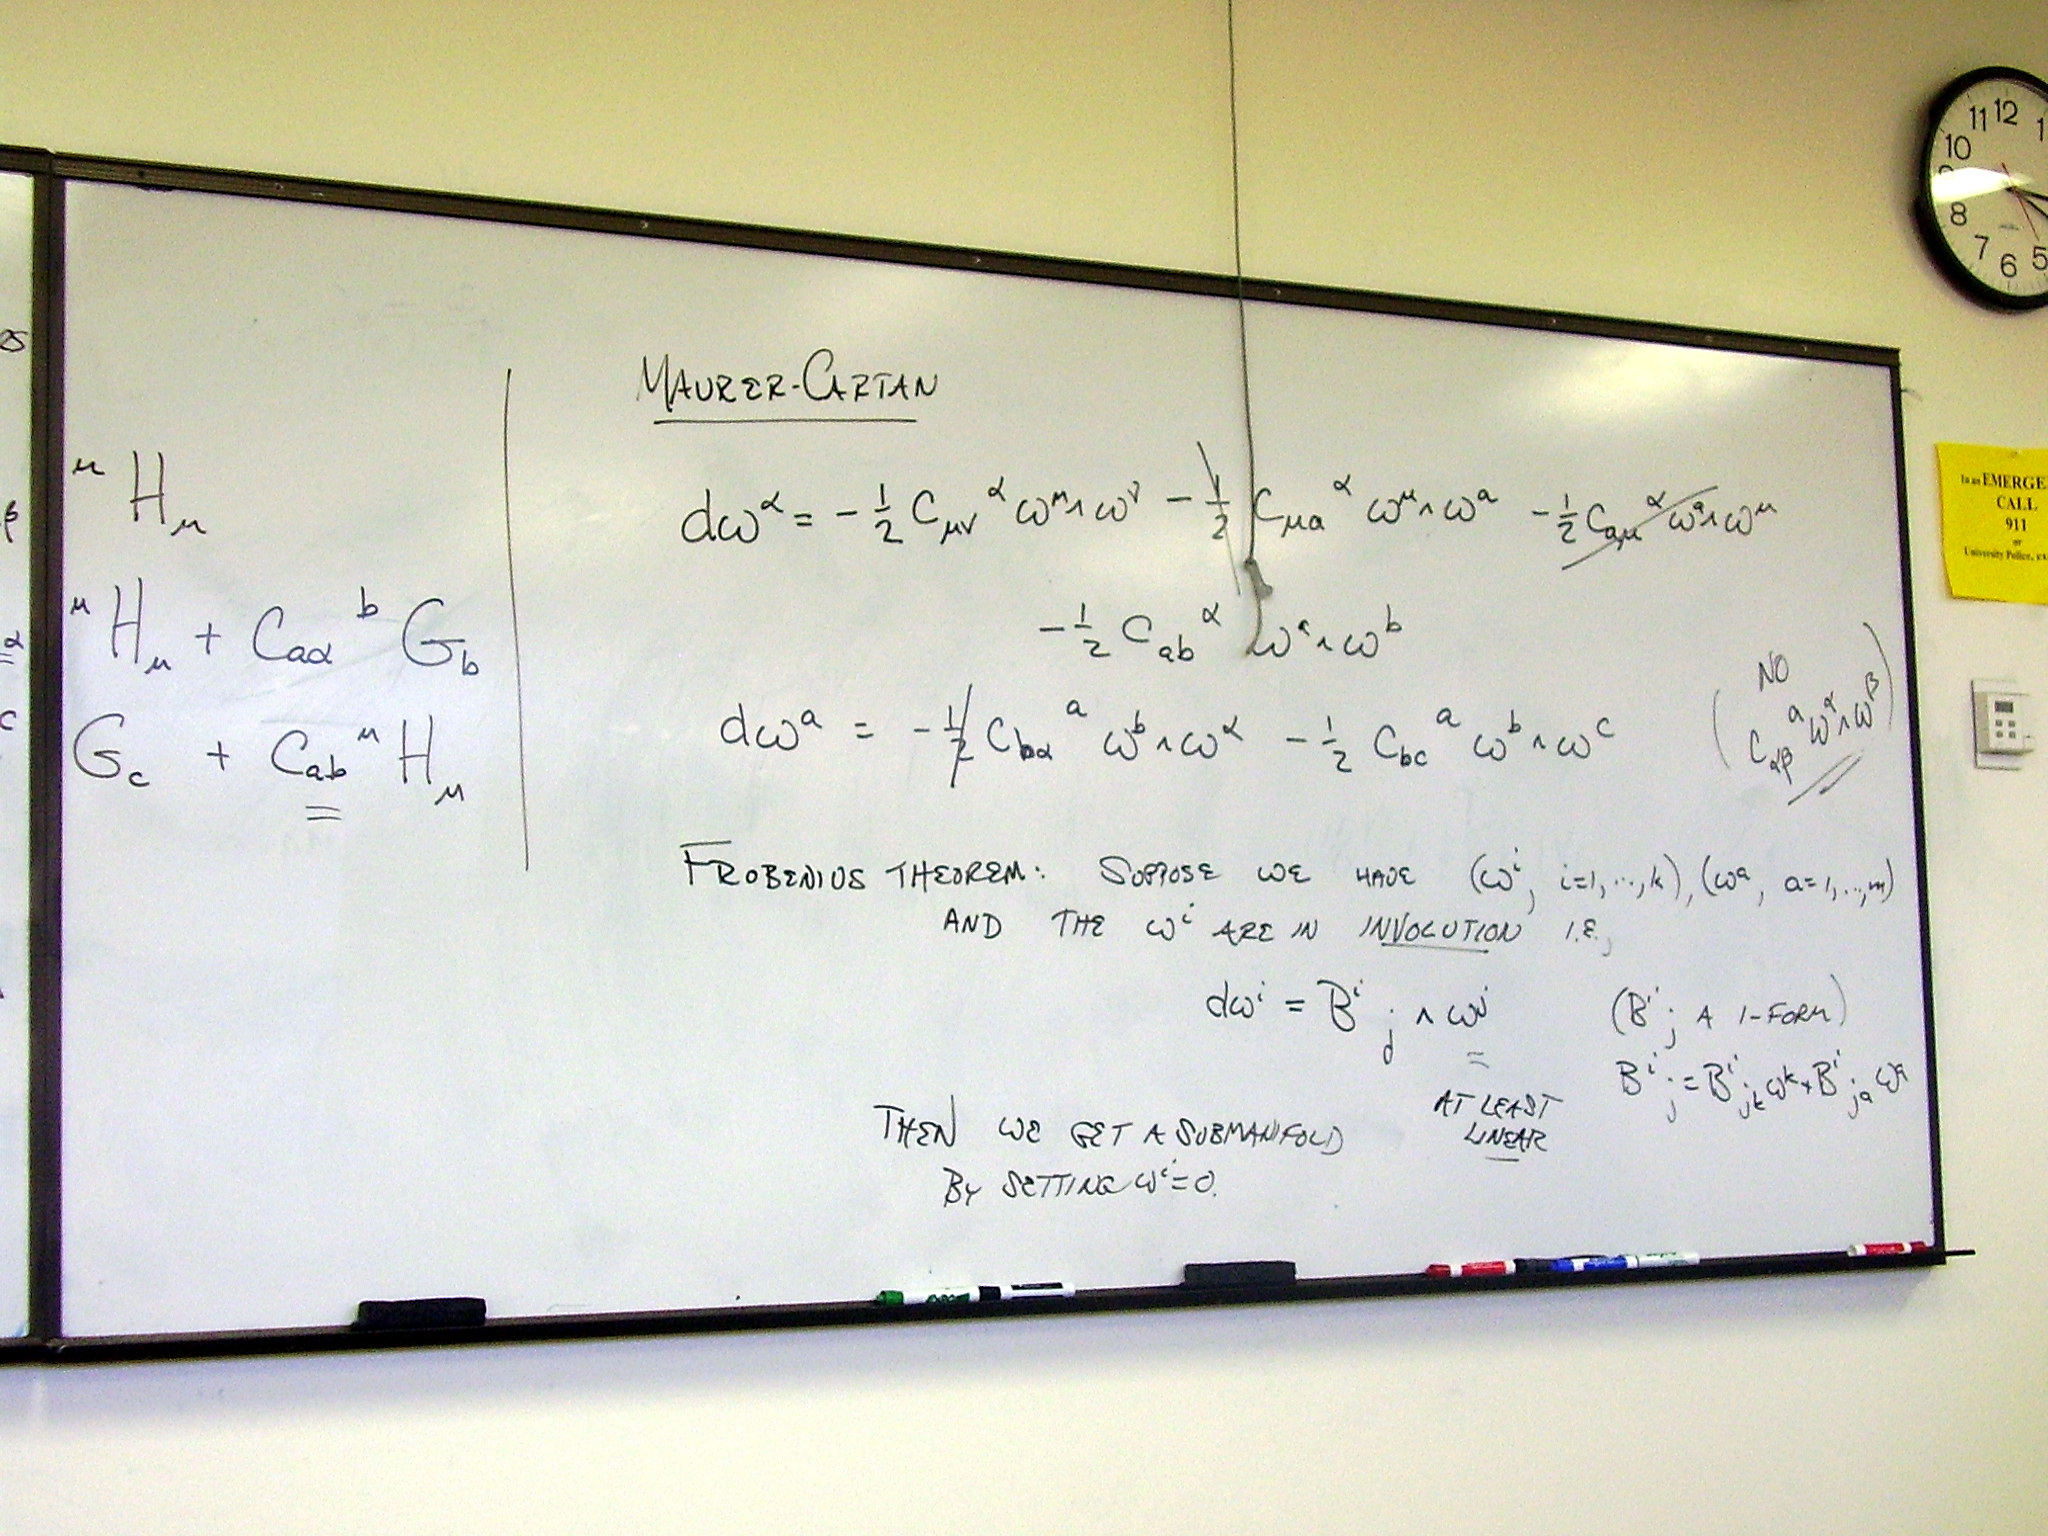 μ H_μ
μ H_μ + C_{aα}^b G_b
G_c + C_{ab}^μ H_μ
MAURER-CARTAN
dω^α = -1/2 C_{μν}^α ω^μ∧ω^ν - 1/2 C_{μa}^α ω^μ∧ω^a - 1/2 C_{aμ}^α ω^a∧ω^μ
-1/2 C_{ab}^α ω^a∧ω^b
dω^a = -1/2 C_{bα}^a ω^b∧ω^α - 1/2 C_{bc}^a ω^b∧ω^c
(NO
C_{αβ}^a ω^α∧ω^β)
FROBENIUS THEOREM: SUPPOSE WE HAVE (ω^i, i=1,...,k), (ω^a, a=1,...,m)
AND THE ω^i ARE IN INVOLUTION I.E.,
dω^i = B^i_j ∧ ω^j (B^i_j A 1-FORM)
B^i_j = B^i_{jk} ω^k + B^i_{ja} ω^a
AT LEAST
LINEAR
THEN WE GET A SUBMANIFOLD
BY SETTING ω^i = 0.
11 12 1
10
8
7 6 5
In an EMERGE
CALL
911
or
University Police,